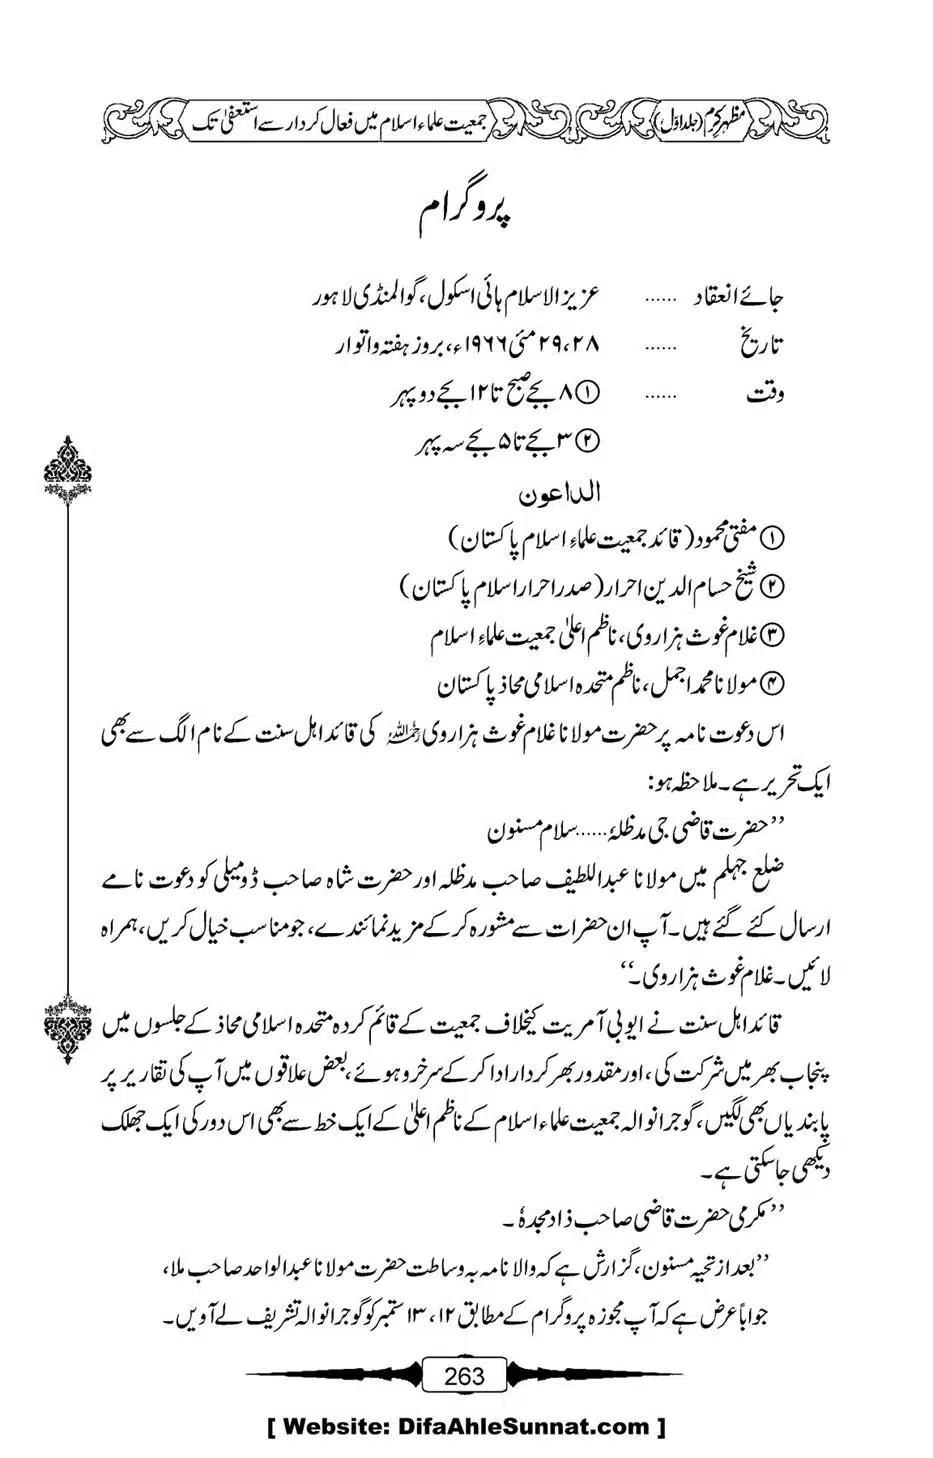 مظہرِ کرم (جلد اوّل) جمعیت علماء اسلام میں فعال کردار سے استعفیٰ تک
پروگرام
جائے انعقاد ...... عزیز الاسلام ہائی اسکول، گوالمنڈی لاہور
تاریخ ...... ۲۸، ۲۹ مئی ۱۹۶۶ء، بروز ہفتہ و اتوار
وقت ...... ① ۸ بجے صبح تا ۱۲ بجے دوپہر
② ۳ بجے تا ۵ بجے سہ پہر
الداعون
① مفتی محمود (قائد جمعیت علماء اسلام پاکستان)
② شیخ حسام الدین احرار (صدر احرار اسلام پاکستان)
③ غلام غوث ہزاروی، ناظم اعلیٰ جمعیت علماء اسلام
④ مولانا محمد اجمل، ناظم متحدہ اسلامی محاذ پاکستان
اس دعوت نامہ پر حضرت مولانا غلام غوث ہزاروی رحمہ اللہ کی قائد اہل سنت کے نام الگ سے بھی
ایک تحریر ہے۔ ملاحظہ ہو:
’’حضرت قاضی جی مدظلہٗ...... سلام مسنون
ضلع جہلم میں مولانا عبداللطیف صاحب مدظلہ اور حضرت شاہ صاحب ڈومیلی کو دعوت نامے
ارسال کئے گئے ہیں۔ آپ ان حضرات سے مشورہ کر کے مزید نمائندے، جو مناسب خیال کریں، ہمراہ
لائیں۔ غلام غوث ہزاروی۔‘‘
قائد اہل سنت نے ایوبی آمریت کیخلاف جمعیت کے قائم کردہ متحدہ اسلامی محاذ کے جلسوں میں
پنجاب بھر میں شرکت کی، اور مقدور بھر کردار ادا کر کے سرخرو ہوئے، بعض علاقوں میں آپ کی تقاریر پر
پابندیاں بھی لگیں، گوجرانوالہ جمعیت علماء اسلام کے ناظم اعلیٰ کے ایک خط سے بھی اس دور کی ایک جھلک
دیکھی جاسکتی ہے۔
’’مکرمی حضرت قاضی صاحب ذاد مجدہٗ۔
’’بعد از تحیہ مسنون، گزارش ہے کہ والا نامہ بہ وساطت حضرت مولانا عبدالواحد صاحب ملا،
جواباً عرض ہے کہ آپ مجوزہ پروگرام کے مطابق ۱۲، ۱۳ ستمبر کو گوجرانوالہ تشریف لے آویں۔
263
[ Website: DifaAhleSunnat.com ]